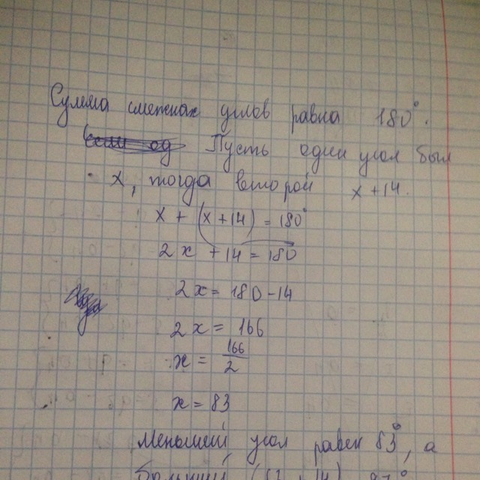 Сумма смежных углов равна 180°.
Пусть один угол был
x, тогда второй x + 14.
x + (x + 14) = 180°
2x + 14 = 180
2x = 180 - 14
2x = 166
x = 166/2
x = 83
Меньший угол равен 83°, а
больший